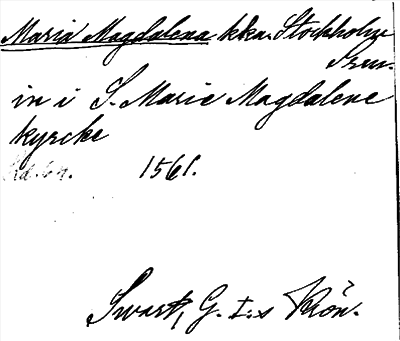 Maria Magdalena kka. Stockholm
Srm.
in i S. Marie Magdalene
kyrcke
1561.
Swart, G. I:s Krön.